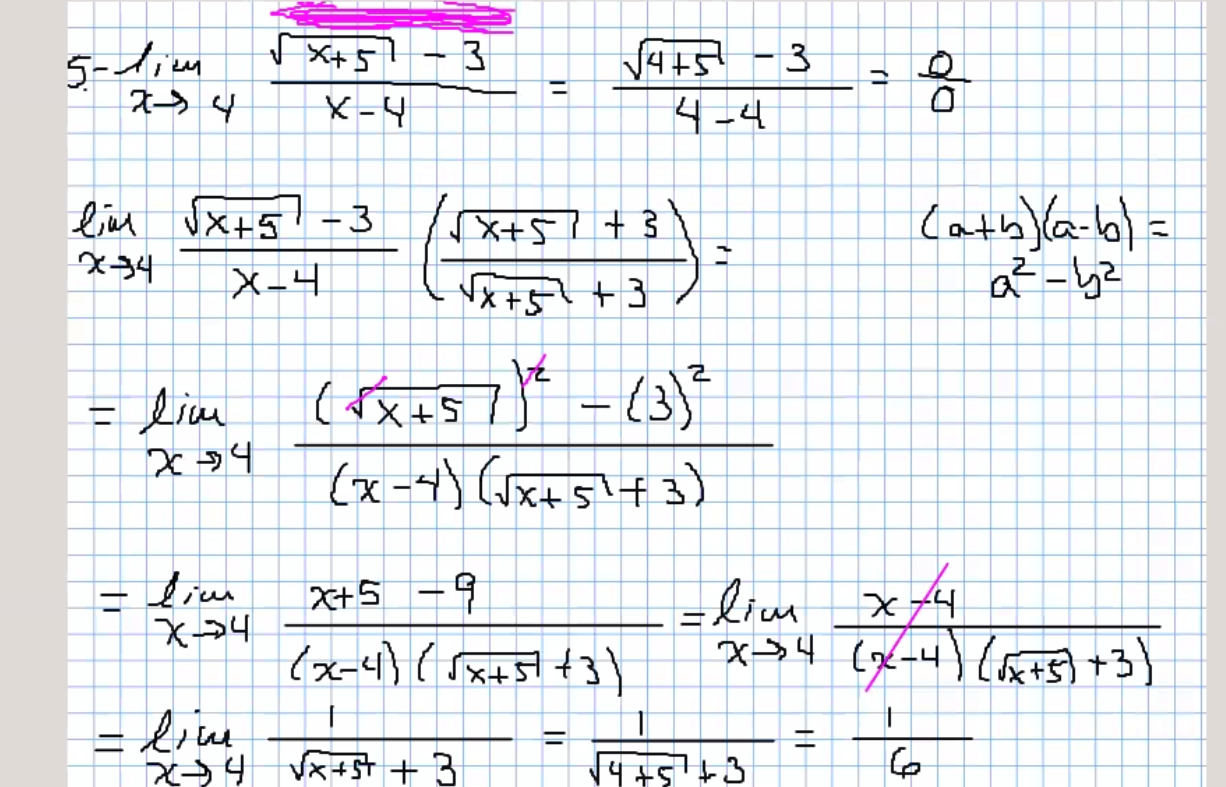 5- lim x→4 (√(x+5) - 3)/(x-4) = (√(4+5) - 3)/(4-4) = 0/0
lim x→4 (√(x+5) - 3)/(x-4) ((√(x+5) + 3)/(√(x+5) + 3)) =
(a+b)(a-b) =
a² - b²
= lim x→4 ((√(x+5))² - (3)²)/((x-4)(√(x+5) + 3))
= lim x→4 (x+5 - 9)/((x-4)(√(x+5) + 3)) = lim x→4 (x-4)/((x-4)(√(x+5) + 3))
= lim x→4 1/(√(x+5) + 3) = 1/(√(4+5) + 3) = 1/6